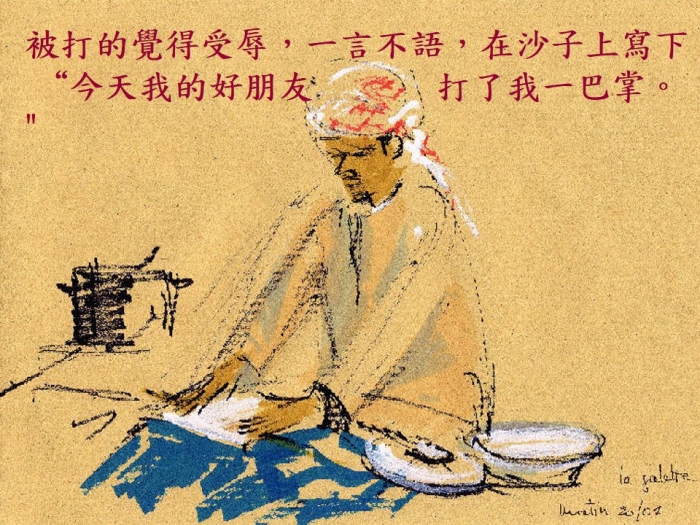 被打的覺得受辱，一言不語，在沙子上寫下
“今天我的好朋友 打了我一巴掌。
"
la galette